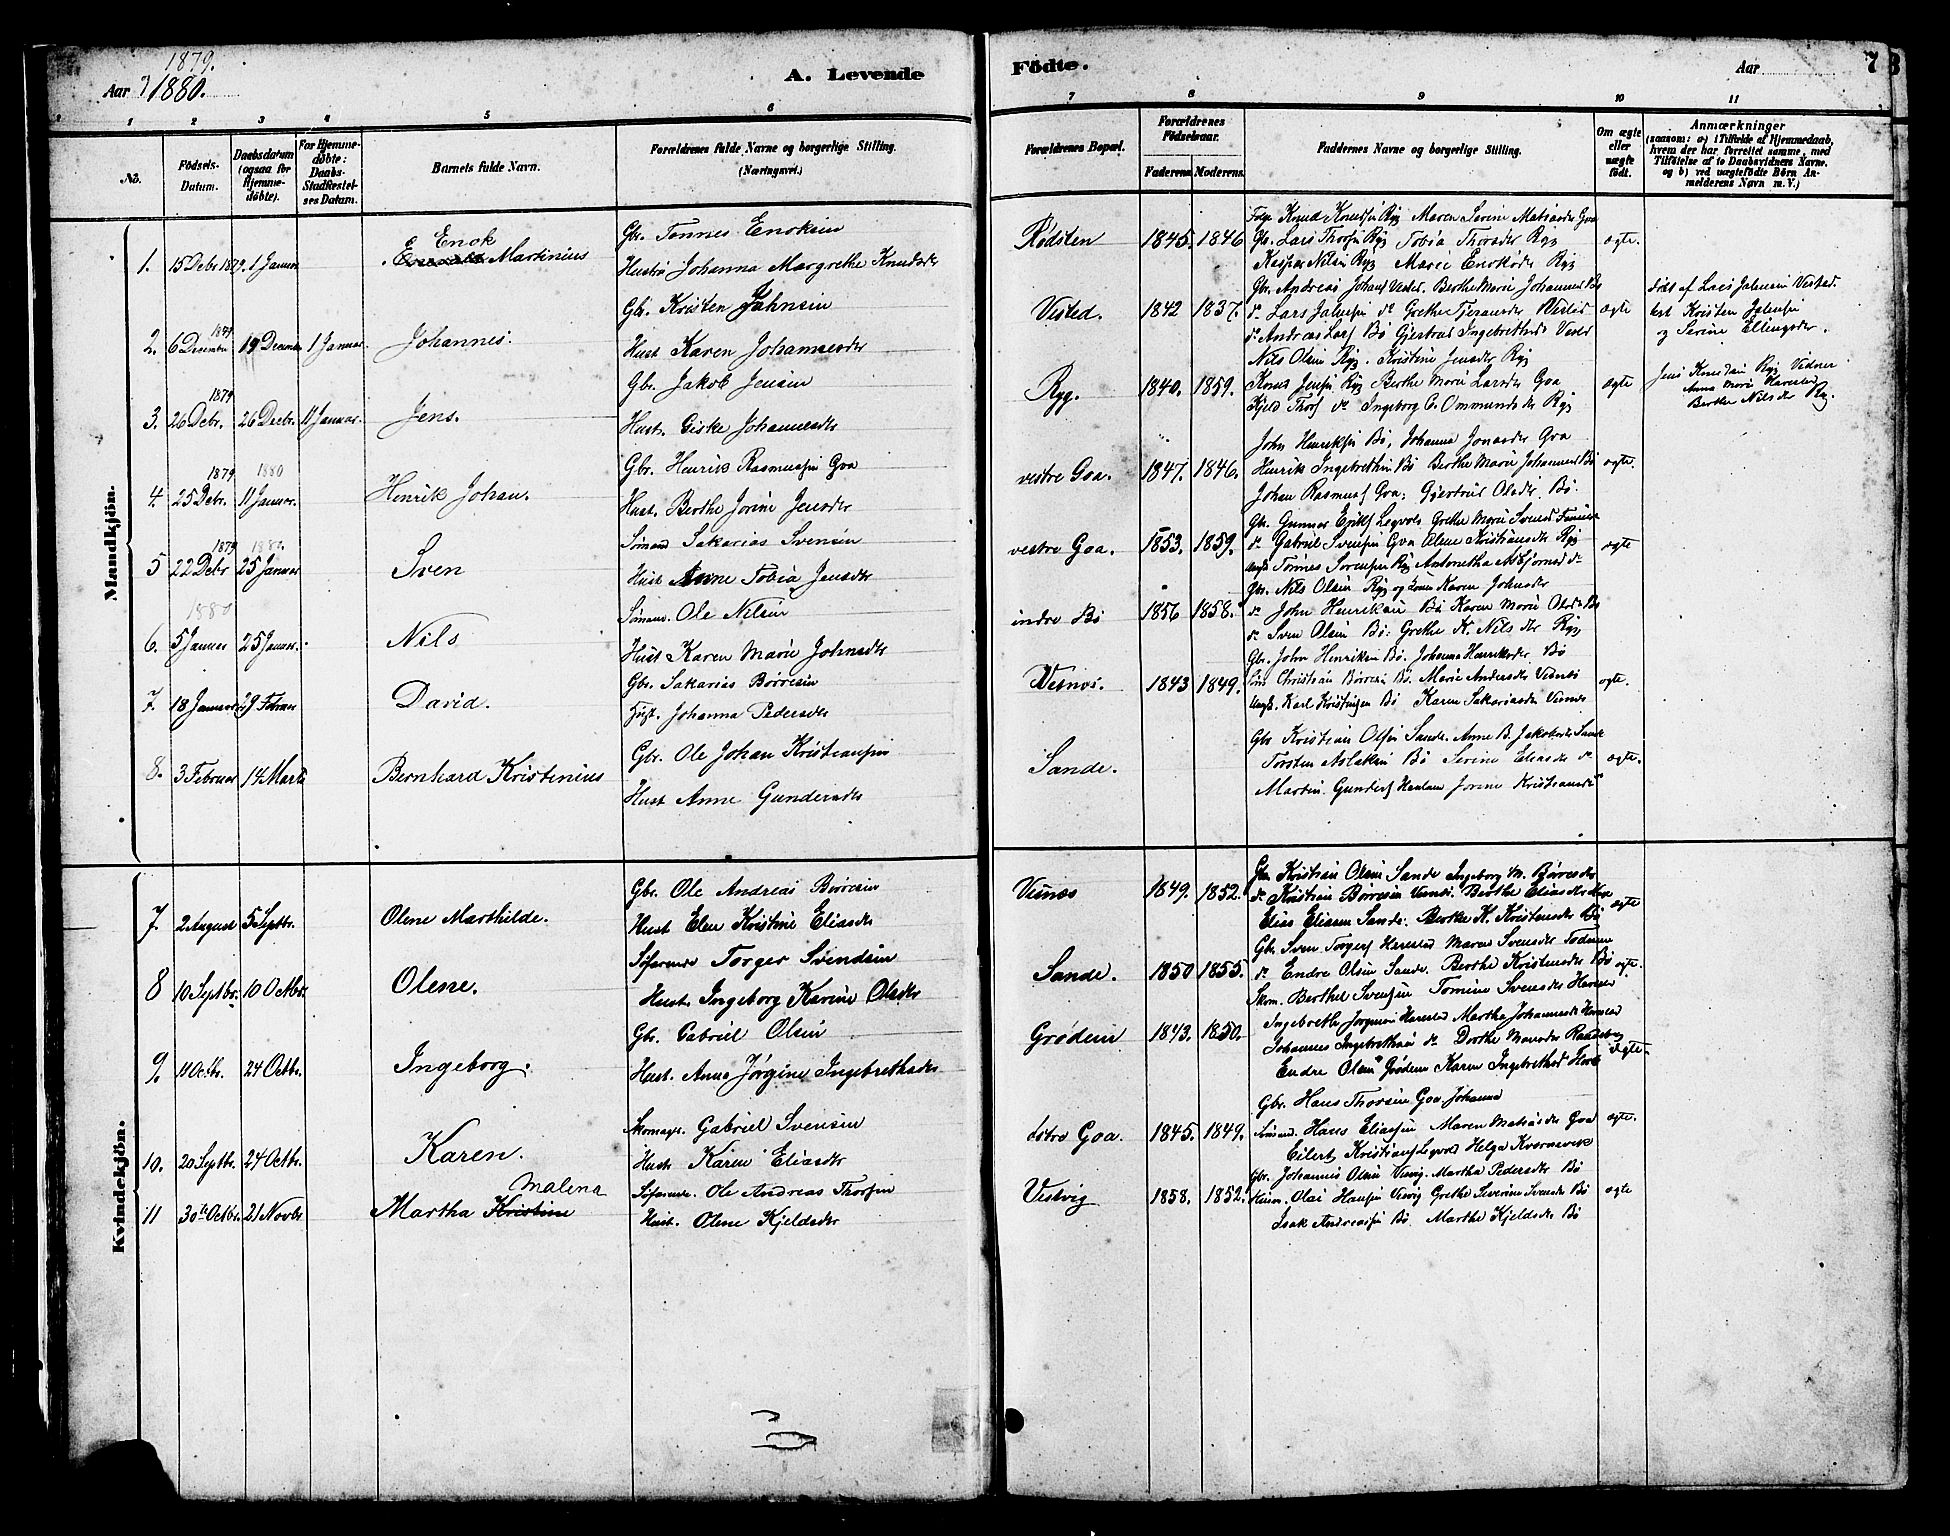 1879.
Aar 1880.
A. Levende
Födte.
Aar
7
1 2 3 4 5 6 7 8 9 10 11
No.
Födsels-Datum.
Daabsdatum (ogsaa for Hjemmedöbte).
For Hjemmedöbte: Daabs-Stadfæstelses Datum.
Barnets fulde Navn.
Forældrenes fulde Navne og borgerlige Stilling. (Næringsvei.)
Forældrenes Bopæl.
Forældrenes Födselsaar.
Faderens. Moderens.
Faddernes Navne og borgerlige Stilling.
Om ægte eller uægte födt.
Anmærkninger
(saasom: a) i Tilfælde af Hjemmedaab,
hvem der har forrettet samme, med
Tilföielse af to Daabsvidners Navne,
og b) ved uægtefödte Börn An-
melderens Navn m.V.)
Mandkjön.
1. 15 Debr 1879. 1 Januar Enok Martinius
Gbr. Tønnes Enoksen
Hustru Johanna Margrethe Knudsdr
Rødsten 1845. 1846 ægte.
Knud Knudsen Ryg Maren Serine Mathiasdr Goa
Gb. Lars Thorsen Ryg Tobia Thorsdr Ryg
Kasper Nilsen Ryg Marie Enoksdr Ryg
2. 1879 6 December 19 December 1 Januar Johannes.
Gbr. Kristen Jahnsen
Hust Karen Johannesdr
Visted. 1842 1837. ægte
Gbr. Andreas Johans Visted. Berthe Marie Johannesd Bø
do Lars Jahnsen do Grethe Visted
do Andreas Larss Bø Gjertrud Ingebrethsd Visted
døbt af Lars Jahnsen Visted.
Kristen Jahnsen
og Serine Ellingsdr.
3. 1879 26 Debr. 26 Decbr. 11 Januar. Jens.
Gbr. Jakob Jensen
Hust. Giske Johannesdr
Ryg. 1840. 1859. ægte
Nils Olsen Ryg. Kristine Jensdr Ryg
Knud Jensen Ryg Berthe Marie Larsdr Goa
Kjeld Thors do Ingeborg C. Ommundsdr Ryg
Jens Ryg Vidner
Anna Marie Harestad
Berthe Nilsdr Ryg.
4. 1879 25 Debr. 1880 11 Januar. Henrik Johan.
Gbr. Henrik Rasmussen Goa
Hust. Berthe Jorine Jensdr
vestre Goa. 1847. 1846. ægte.
John Henriksen Bø, Johanna Jonasdr Goa
Henrik Ingebrethsen Bø Berthe Marie Johannesd Bø
Johan Rasmuss Goa; Gjertrud Olsdr Bø.
5 1879 22 Debr 1880 25 Januar Sven
Sømand Sakarias Svensen
Hust Anne Tobia Jensdr
vestre Goa. 1853. 1859. ægte
Gbr. Gunnar Eriks Legvold Grethe Marie Svensd
do Gabriel Svensen Goa Olene Kristiansdr Ryg
Ungk Tønnes Sørensen Ryg Antonetha Asbjørnsd do
6. 1880 5 Januar 25 Januar. Nils
Sømand. Ole Nilsen
Hust Karen Marie Johnsdr
indre Bø 1856 1858.
Gbr. Nils Olsen Ryg og Kone Karen Johnsdr
do John Henriksen Bø Karen Marie Olsdr Bø
do Sven Olsen Bø. Grethe K. Nilsdr Ryg
7. 18 Januar 29 Februar David.
Gbr. Sakarias Børresen
Hust. Johanna Pedersdr
Visnæs. 1843 1849. ægte.
Gbr. John Henriksen Bø. Johanna Henriksdr Bø
Christian Børresen Bø. Marie Andersdr Visnæs
Ungk. Karl Kristensen Bø Karen Sakariasdr Visnæs
8. 3 Februar 14 Marts Bernhard Kristinius
Gbr. Ole Johan Kristiansen
Hust Anne Gundersdr
Sande. ægte.
Gbr Kristian Olsen Sande. Anne B. Jakobsdr Sande
Torsten Aslaksen Bø Serine Eliasdr do
Martin Gunders Jorine Kristiansdr
Kvindekjön.
7. 2 August 5 Septbr. Olene Marthilde.
Gbr. Ole Andreas Børresen
Hust Elen Kristine Eliasdr
Visnæs 1849. 1852. ægte
Gbr Kristian Olsen Sande Ingeborg M. Børresdr
do Kristian Børresen Visnæs. Berthe Eliasdr
Elias Eliasen Sande. Berthe K. Kristensdr Bø
8 10 Septbr. 10 Octbr. Olene.
Søfarende Torger Svendsen
Hust. Ingeborg Karine Olsdr
Sande. 1850 1855. ægte.
Gbr Sven Torgers Harestad Maren Svensdr
do Endre Olsen Sande. Berthe Kristensdr Bø
Skom. Berthel Svensen Tomine Svensdr Harestad
9. 11 Octbr. 24 Octbr. Ingeborg.
Gbr. Gabriel Olsen
Hust. Anna Jørgine Ingebrethsdr
Grødem 1843. 1850. ægte.
Ingebreth Jørgensen Harestad Martha Johannesdr Harestad
Johannes Ingebrethsen do Dorthe
Endre Olsen Grødem Karen Ingebrethsd
10. 20 Septbr. 24 Octbr. Karen.
Skomagr. Gabriel Svensen
Hust. Karen Eliasdr
østre Goa. 1845. 1849. ægte.
Gbr. Hans Thorsen Goa Johanna
Sømand. Hans Eliassen Maren Mathiasdr Goa
Eilert Kristians Legvold Helga Kvernevik
11 30te Octbr. 21 Novbr Martha Kristine Malena
Søfarende. Ole Andreas Thorsen
Hust. Olene Kjeldsdr
Vestvig 1858. 1852. ægte
Gbr. Johannes Olsen Visvig. Martha Pedersdr Bø
Olai Hansen Visvig Grethe Severine Svensdr Bø
Isak Andreassen Bø Marthe Kjeldsdr Bø